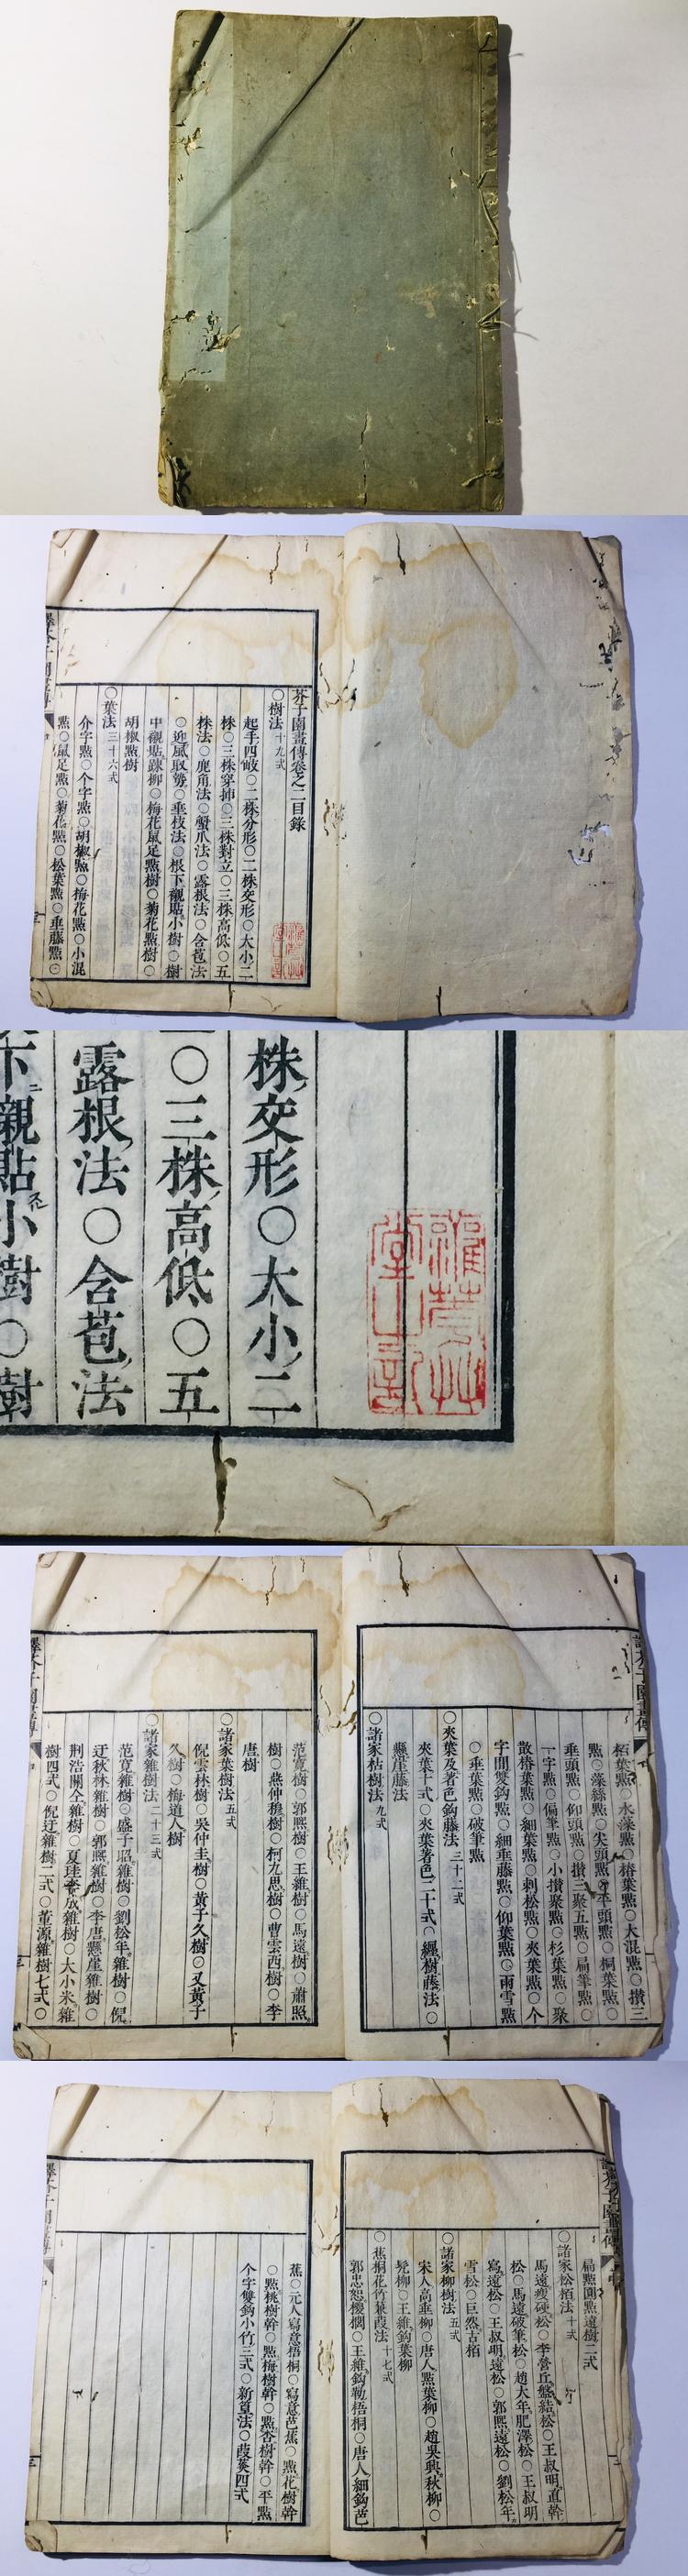 芥子園畫傳卷之二目錄
○樹法十九式
起手四岐○二株分形○二株交形○大小二
株○三株穿揷○三株對立○三株高低○五
株法○鹿角法○蟹爪法○露根法○含苞法
○迎風取勢○垂枝法○根下襯貼小樹○樹
中襯貼踈柳○梅花鼠足㸃樹○菊花㸃樹○
胡椒㸃樹
○葉法三十六式
介字㸃○个字㸃○胡椒㸃○梅花㸃○小混
㸃○鼠足㸃○菊花㸃○松葉㸃○垂藤㸃○
譯芥子園畫傳
株交形○大小二
○三株高低○五
露根法○含苞法
下襯貼小樹○樹
栢葉㸃○水藻㸃○椿葉㸃○大混㸃○攢三
㸃○藻絲㸃○尖頭㸃○平頭㸃○桐葉㸃○
垂頭㸃○仰頭㸃○攢三聚五㸃○扁筆㸃○
一字㸃○偏筆㸃○小攢聚㸃○杉葉㸃○聚
散椿葉㸃○細葉㸃○刺松㸃○夾葉㸃○个
字間雙鈎㸃○細垂藤㸃○仰葉㸃○雨雪㸃
○垂葉㸃○破筆㸃
○夾葉及著色鈎藤法三十二式
夾葉十式○夾葉著色二十式○纒樹藤法○
懸崖藤法
○諸家枯樹法九式
范寛樹○郭熙樹○王維樹○馬遠樹○蕭照
樹○燕仲穆樹○柯九思樹○曹雲西樹○李
唐樹
○諸家葉樹法五式
倪雲林樹○吳仲圭樹○黃子久樹○又黃子
久樹○梅道人樹
○諸家雜樹法二十三式
范寛雜樹○盛子昭雜樹○劉松年雜樹○倪
迂秋林雜樹○郭熙雜樹○李唐懸崖雜樹○
荆浩關仝雜樹○夏珪李成雜樹○大小米雜
樹四式○倪迂雜樹二式○董源雜樹七式○
譯芥子園畫傳
扁㸃圓㸃遠樹二式
○諸家松栢法十式
馬遠瘦硬松○李營丘盤結松○王叔明直幹
松○馬遠破筆松○趙大年肥澤松○王叔明
寫遠松○王叔明遠松○郭熙遠松○劉松年
雪松○巨然古栢
○諸家柳樹法五式
宋人高垂柳○唐人㸃葉柳○趙吳興秋柳○
髠柳○王維鈎葉柳
○蕉桐花竹蒹葭法十七式
郭忠恕椶櫚○王維鈎勒梧桐○唐人細鈎芭
蕉○元人寫意梧桐○寫意芭蕉○㸃花樹幹
○㸃桃樹幹○㸃梅樹幹○㸃杏樹幹○平㸃
个字雙鈎小竹三式○新篁法○葭菼四式
譯芥子園畫傳